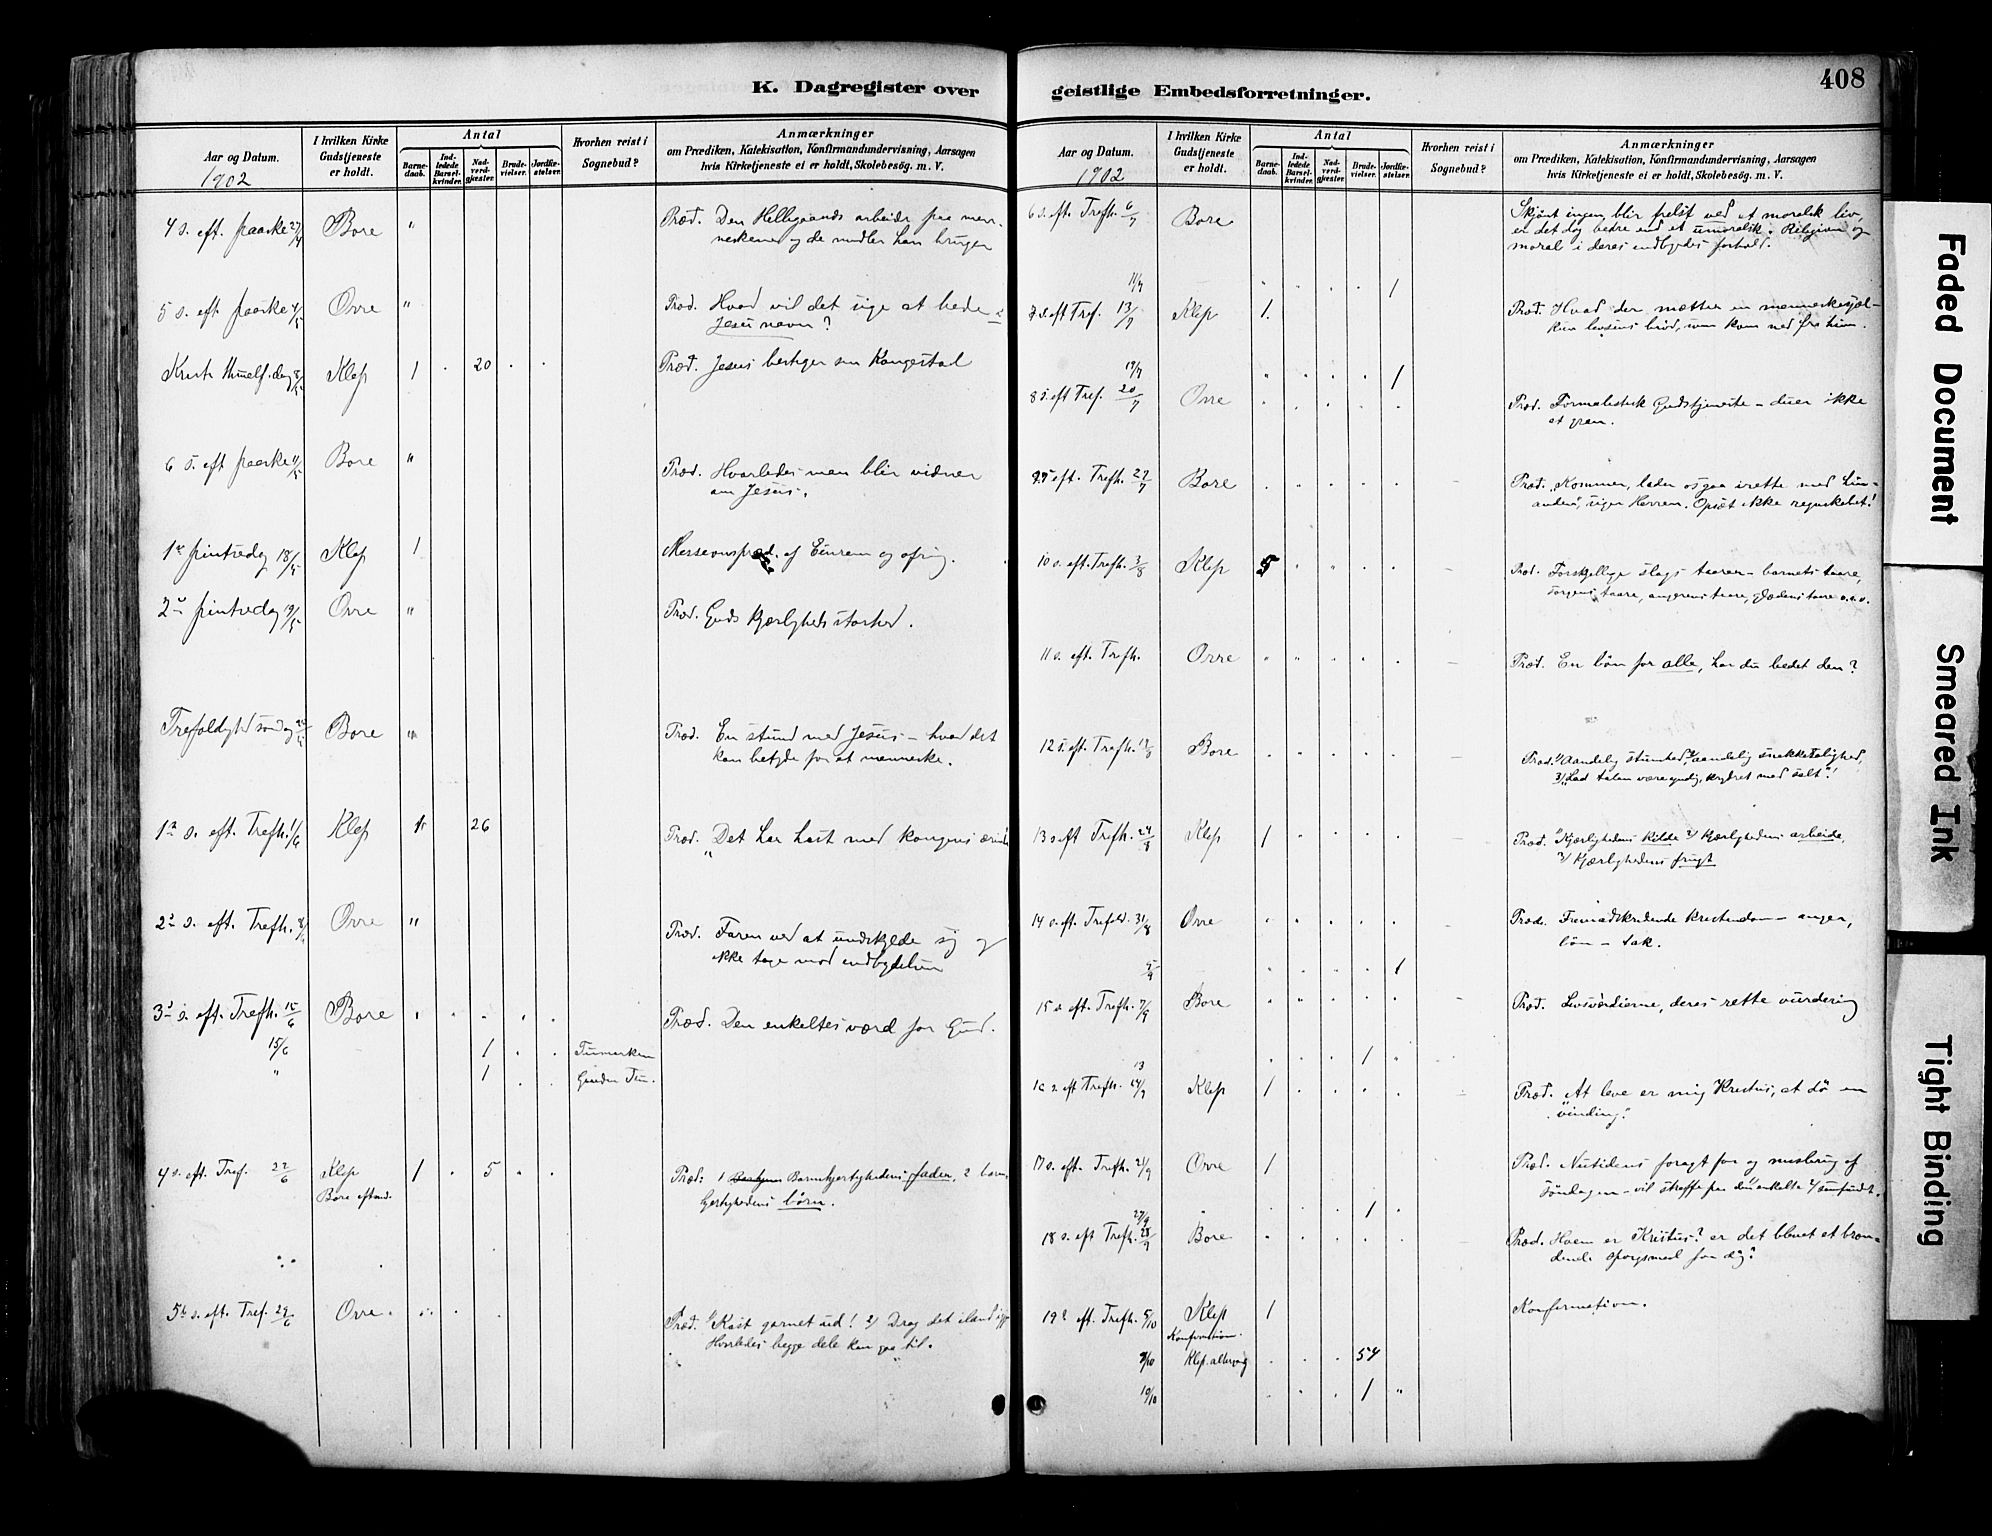 K. Dagregister over
Aar og Datum.
1902
I hvilken Kirke
Gudstjeneste
er holdt.
Antal
Barne-
daab.
Ind-
ledede
Barsel-
kvinder.
Nad-
verd-
gjæster.
Brude-
vielser.
Jordfæ-
stelser.
Hvorhen reist i
Sognebud?
Anmærkninger
om Prædiken, Katekisation, Konfirmandundervisning, Aarsagen
hvis Kirketjeneste ei er holdt, Skolebesög. m. V.
4 s. eft. paaske 27/4 Bore " Præd. Den Helligaands arbeide paa men-
neskene og de midler han bruger
5 s. eft. paaske 4/5 Orre " Præd. Hvad vil det sige at bede i
Jesu navn?
Kristi Himelf. dag 8/5 Klep 1 . 20 . . Præd. Jesus bestiger sin Kongestol
6 s. eft paaske 11/5 Bore " Præd. Hvorledes man blir vidner
om Jesus.
1ste pintsedag 18/5 Klep 1 af og
2den pintsedag 19/5 Orre " Præd. Guds kjærligheds storhed.
Trefoldighed søndag 25/5 Bore " Præd. En stund med Jesus – hvad det
kan betyde for et menneske.
1ste s. eft. Trefh. 1/6 Klep 1 26 Præd. "Det har hast med kongens ærinde
2den s. eft. Trefh. 8/6 Orre " Præd. Faren ved at undskylde sig og
ikke tage mod indbydelsen
3die s. eft. Trefh. 15/6 Bore . . . . . Præd. Den enkeltes værd for Gud.
15/6 1 . .
" 1 . .
4 s. eft. Tref. 22/6 Klep 1 . 5 . . Præd: 1 Barmhjertighedens faden, 2 barm-
Bore eftmd. hjertighedens börn.
5te s. eft. Tref. 29/6 Orre. Præd. 1/ Kast garnet ud! 2/ Drag det iland igj.
Hvorledes begge dele kan gaa til.
geistlige Embedsforretninger.
408
Aar og Datum.
1902
I hvilken Kirke
Gudstjeneste
er holdt.
Antal
Barne-
daab.
Ind-
ledede
Barsel-
kvinder.
Nad-
verd-
gjæster.
Brude-
vielser.
Jordfæ-
stelser.
Hvorhen reist i
Sognebud?
Anmærkninger
om Prædiken, Katekisation, Konfirmandundervisning, Aarsagen
hvis Kirketjeneste ei er holdt, Skolebesög. m. V.
6 s. eft. Trefh. 6/7 Bore Skjønt ingen blir frelst ved et moralsk liv,
er det dog bedre end et umoralsk. Religion og
moral i deres indbyrdes forhold.
11/7 . . . . 1
7 s. eft Tref. 13/7 Klep 1. Præd. Hvad der mætter en menneskesjæl –
kun livsens bröd, som kom ned fra him.
19/7 . . . . 1
8 s. eft Tref. 20/7 Orre . . . . . Præd. Formalistisk Gudstjeneste – duer ikke
et gran.
9 s eft. Trefh. 27/7 Bore . . . . . Præd. "Kommer, lader os gaa irette med hin-
anden", siger Herren. Opsæt ikke regnskabet!
10 s. eft. Trefh. 3/8 Klep 5 . . . . Præd. Forskjellige slags taarer – barnets taare,
sorgens taare, angerens taare, glædens taare o.s.v.
11 s. eft. Trefh. Orre . . . . . Præd. En bön for alle, har du bedet den?
12 s. eft. Trefh. 17/8 Bore . . . . . Præd. 1/ Aandelig stumhed, 2/ aandelig snakkesalighed,
3/ "Lad talen være yndig, krydret med salt"!
13 s eft Trefh. 24/8 Klep 1 . . . . Præd. 1/ Kjærlighedens kilde 2/ kjærlighedens arbeide,
3/ kjærlighedens frugt
14 s. eft. Trefold. 31/8 Orre . . . . . Præd. Fremadskridende kristendom – anger,
bön – tak.
5/9 . . . . 1
15 s. eft Trefh. 7/9 Bore . . . . . Præd. Livsværdierne, deres rette vurdering
13 . . . 1 "
16 s eft Trefh. 14/9 Klep 1 . . . . Præd. "At leve er mig Kristus, at dö en
vinding."
17 s. eft. Trefh. 21/9 Orre 1 Præd. Nutidens foragt for og misbrug af
Söndagen – vil straffe paa 1/ den enkelte 2/ samfundet.
27/9 . . . 1 .
18 s. eft Trefh. 28/9 Bore . . . . . Præd. Hvem er Kristus? er det blevet et bræn-
dende spørgsmaal for dig?
19 s eft. Trefh. 5/10 Klep 1 Konfirmation.
Konfirmation.
9/10 Klep. altergang . . . 54
10/10 . . . 1 "
Faded Document
Smeared Ink
Tight Binding